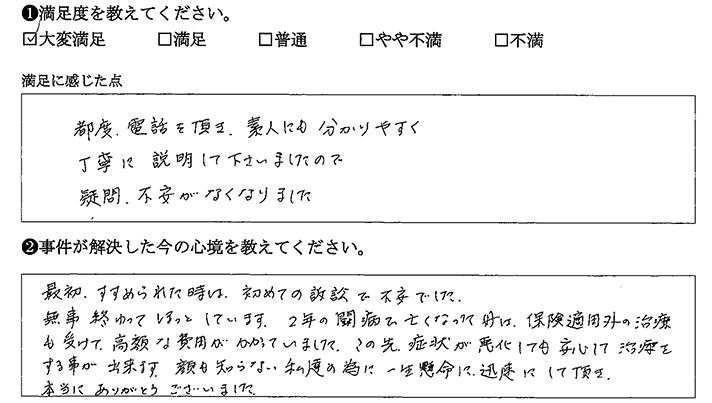 ❶満足度を教えてください。
☑大変満足 □満足 □普通 □やや不満 □不満
満足に感じた点
都度、電話を頂き、素人にも分かりやすく
丁寧に説明して下さいましたので
疑問、不安がなくなりました
❷事件が解決した今の心境を教えてください。
最初、すすめられた時は、初めての訴訟で不安でした。
無事終わってほっとしています。2年の闘病で亡くなって 保険適用外の治療
も受けて、高額な費用がかかっていました。この先、症状が悪化しても安心して治療を
する事が出来ます。顔も知らない私達の為に一生懸命に、迅速にして頂き、
本当にありがとうございました。